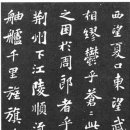 西望夏口東望武
相繆鬱乎蒼蒼此
之困於周郎者乎
荊州下江陵順流
舳艫千里旌旗